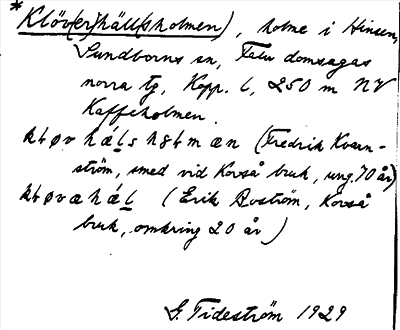 * Klöv(er)häll(sholmen), holme i Hinsen,
Sundborns sn, Falu domsagas
norra tg, Kopp. l, 250 m NV
Kaffeholmen.
(Fredrik Kvarn-
ström, smed vid Korså bruk, ung. 70 år)
(Erik Boström, Korså
bruk, omkring 20 år)
G. Tideström 1929